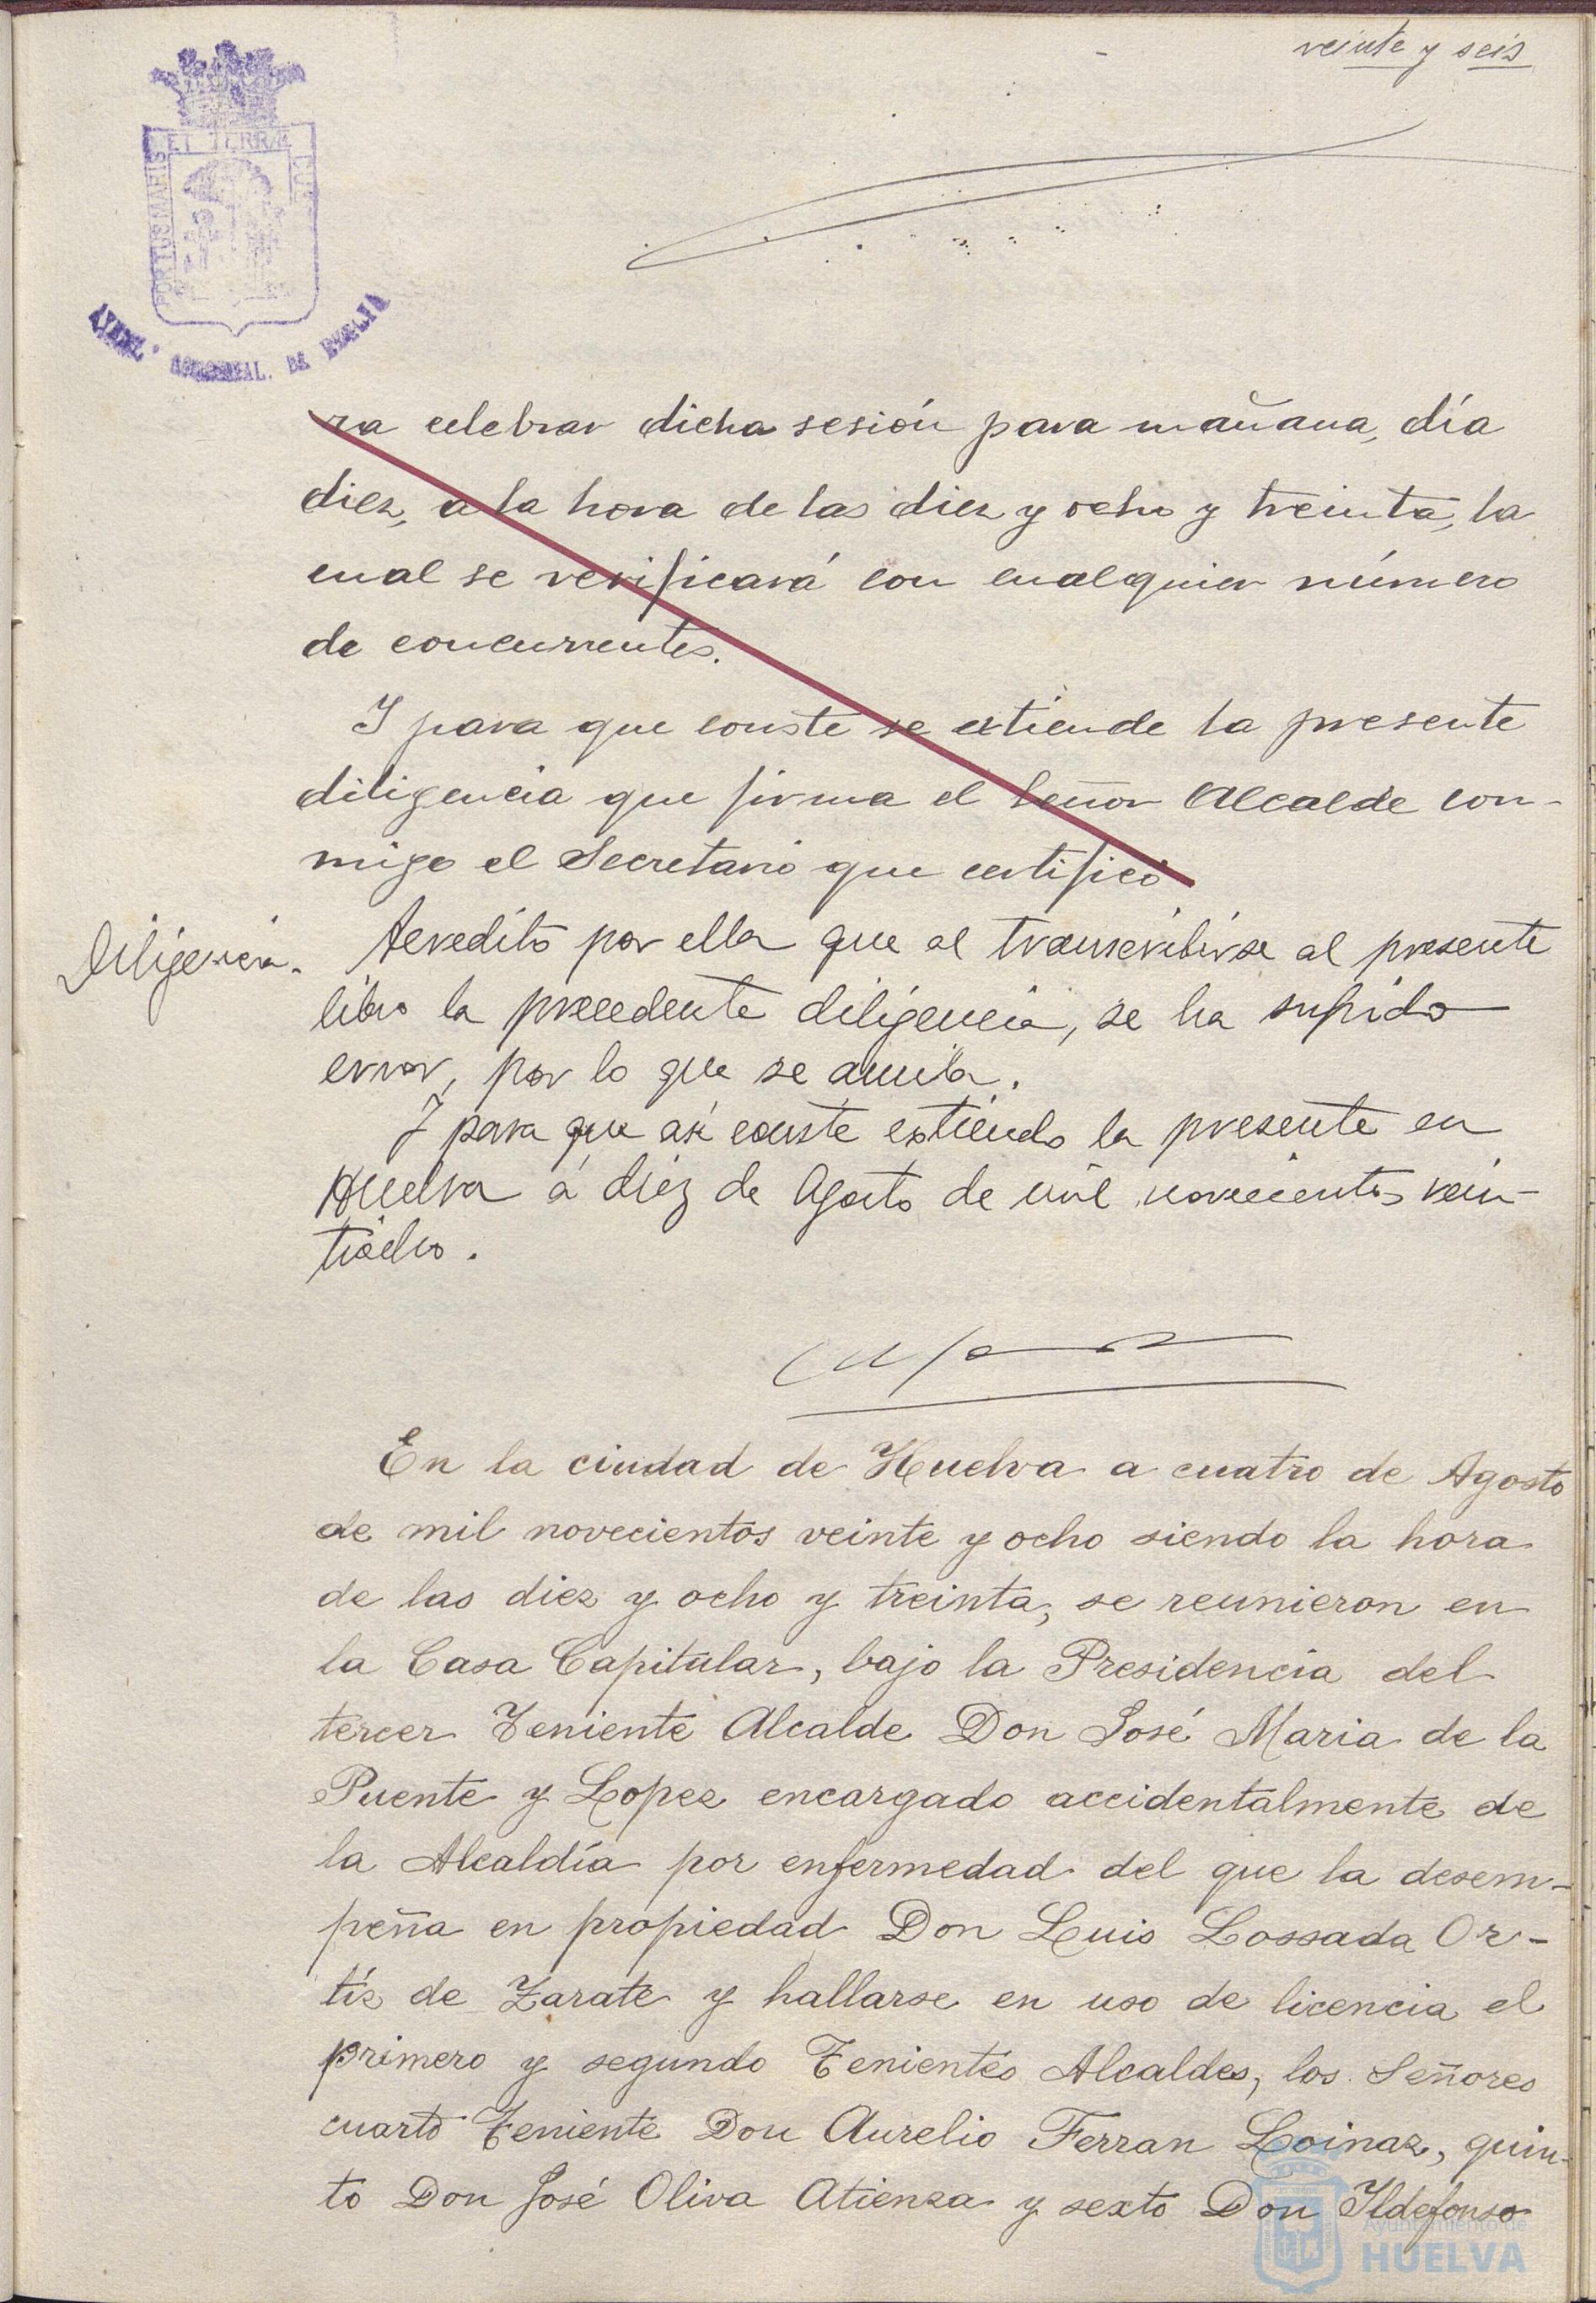 veinte y seis
ET TERRÆ
PORTUS MARIS
CUS
AYUNT.º MUNICIPAL. DE HUELVA
ra celebrar dicha sesión para mañana, día
diez, a la hora de las diez y ocho y treinta, la
cual se verificará con cualquier número
de concurrentes.
Y para que conste se extiende la presente
diligencia que firma el Señor Alcalde con-
migo el Secretario que certifico
Diligencia. Acredito por ella que al transcribirse al presente
libro la precedente diligencia, se ha sufrido
error, por lo que se anula.
Y para que así conste extiendo la presente en
Huelva á diez de Agosto de mil novecientos vein-
tiocho.
En la ciudad de Huelva a cuatro de Agosto
de mil novecientos veinte y ocho siendo la hora
de las diez y ocho y treinta, se reunieron en
la Casa Capitular, bajo la Presidencia del
tercer Teniente Alcalde Don José Maria de la
Puente y Lopez encargado accidentalmente de
la Alcaldía por enfermedad del que la desem-
peña en propiedad Don Luis Lossada Or-
tíz de Zarate y hallarse en uso de licencia el
primero y segundo Tenientes Alcaldes, los Señores
cuarto Teniente Don Aurelio Ferran Loinaz, quin-
to Don José Oliva Atienza y sexto Don Ildefonso
Ayuntamiento de
HUELVA